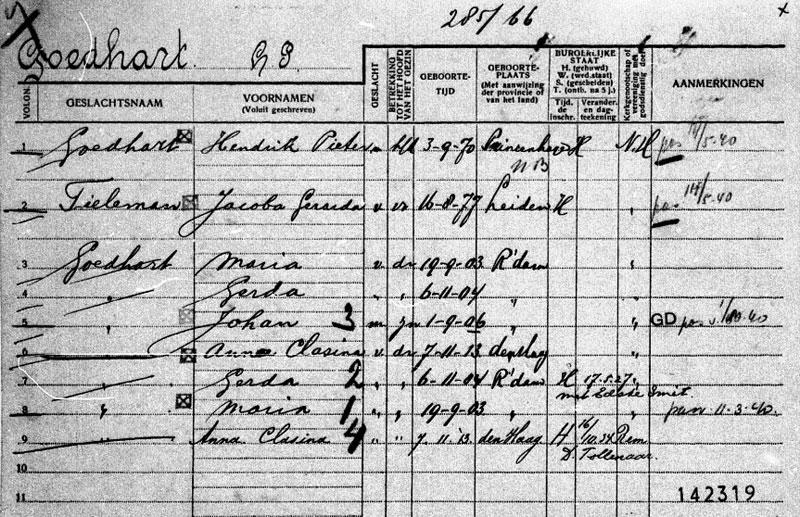 285/66
Goedhart. H P
VOLGN. GESLACHTSNAAM VOORNAMEN (Voluit geschreven) GESLACHT BETREKKING TOT HET HOOFD VAN HET GEZIN GEBOORTE-TIJD GEBOORTE-PLAATS (Met aanwijzing der provincie of van het land) BURGERLIJKE STAAT H. (gehuwd) W. (wed.staat) S. (gescheiden) T. (ontb. na 5 j.) Tijd. de inschr. Verander. en dag-teekening Kerkgenootschap of vereeniging met godsdienstig doel AANMERKINGEN
1 Goedhart Hendrik Pieter m hfd 3-9-70 Prinsenhove H N.H pas 14/5-40
N B
2 Tieleman Jacoba Gerarda v vr 16-8-77 Leiden H " pas 14/5-40
3 Goedhart Maria v dr 19-9-03 R'dam "
4 " Gerda " " 6-11-04 " "
5 " Johan 3 m zn 1-9-06 " " GD
6 Anna Clasina v dr 7-11-13 den Haag
7 " Gerda 2 " " 6-11-04 R'dam H 17.5.27 "
met Smit.
8 " Maria 1 " " 19-9-03 " " pas 11-3-40.
9 " Anna Clasina 4 " " 7.11.13. den Haag H 16/10.34 Rem
D. Tollenaar.
10
11
142319